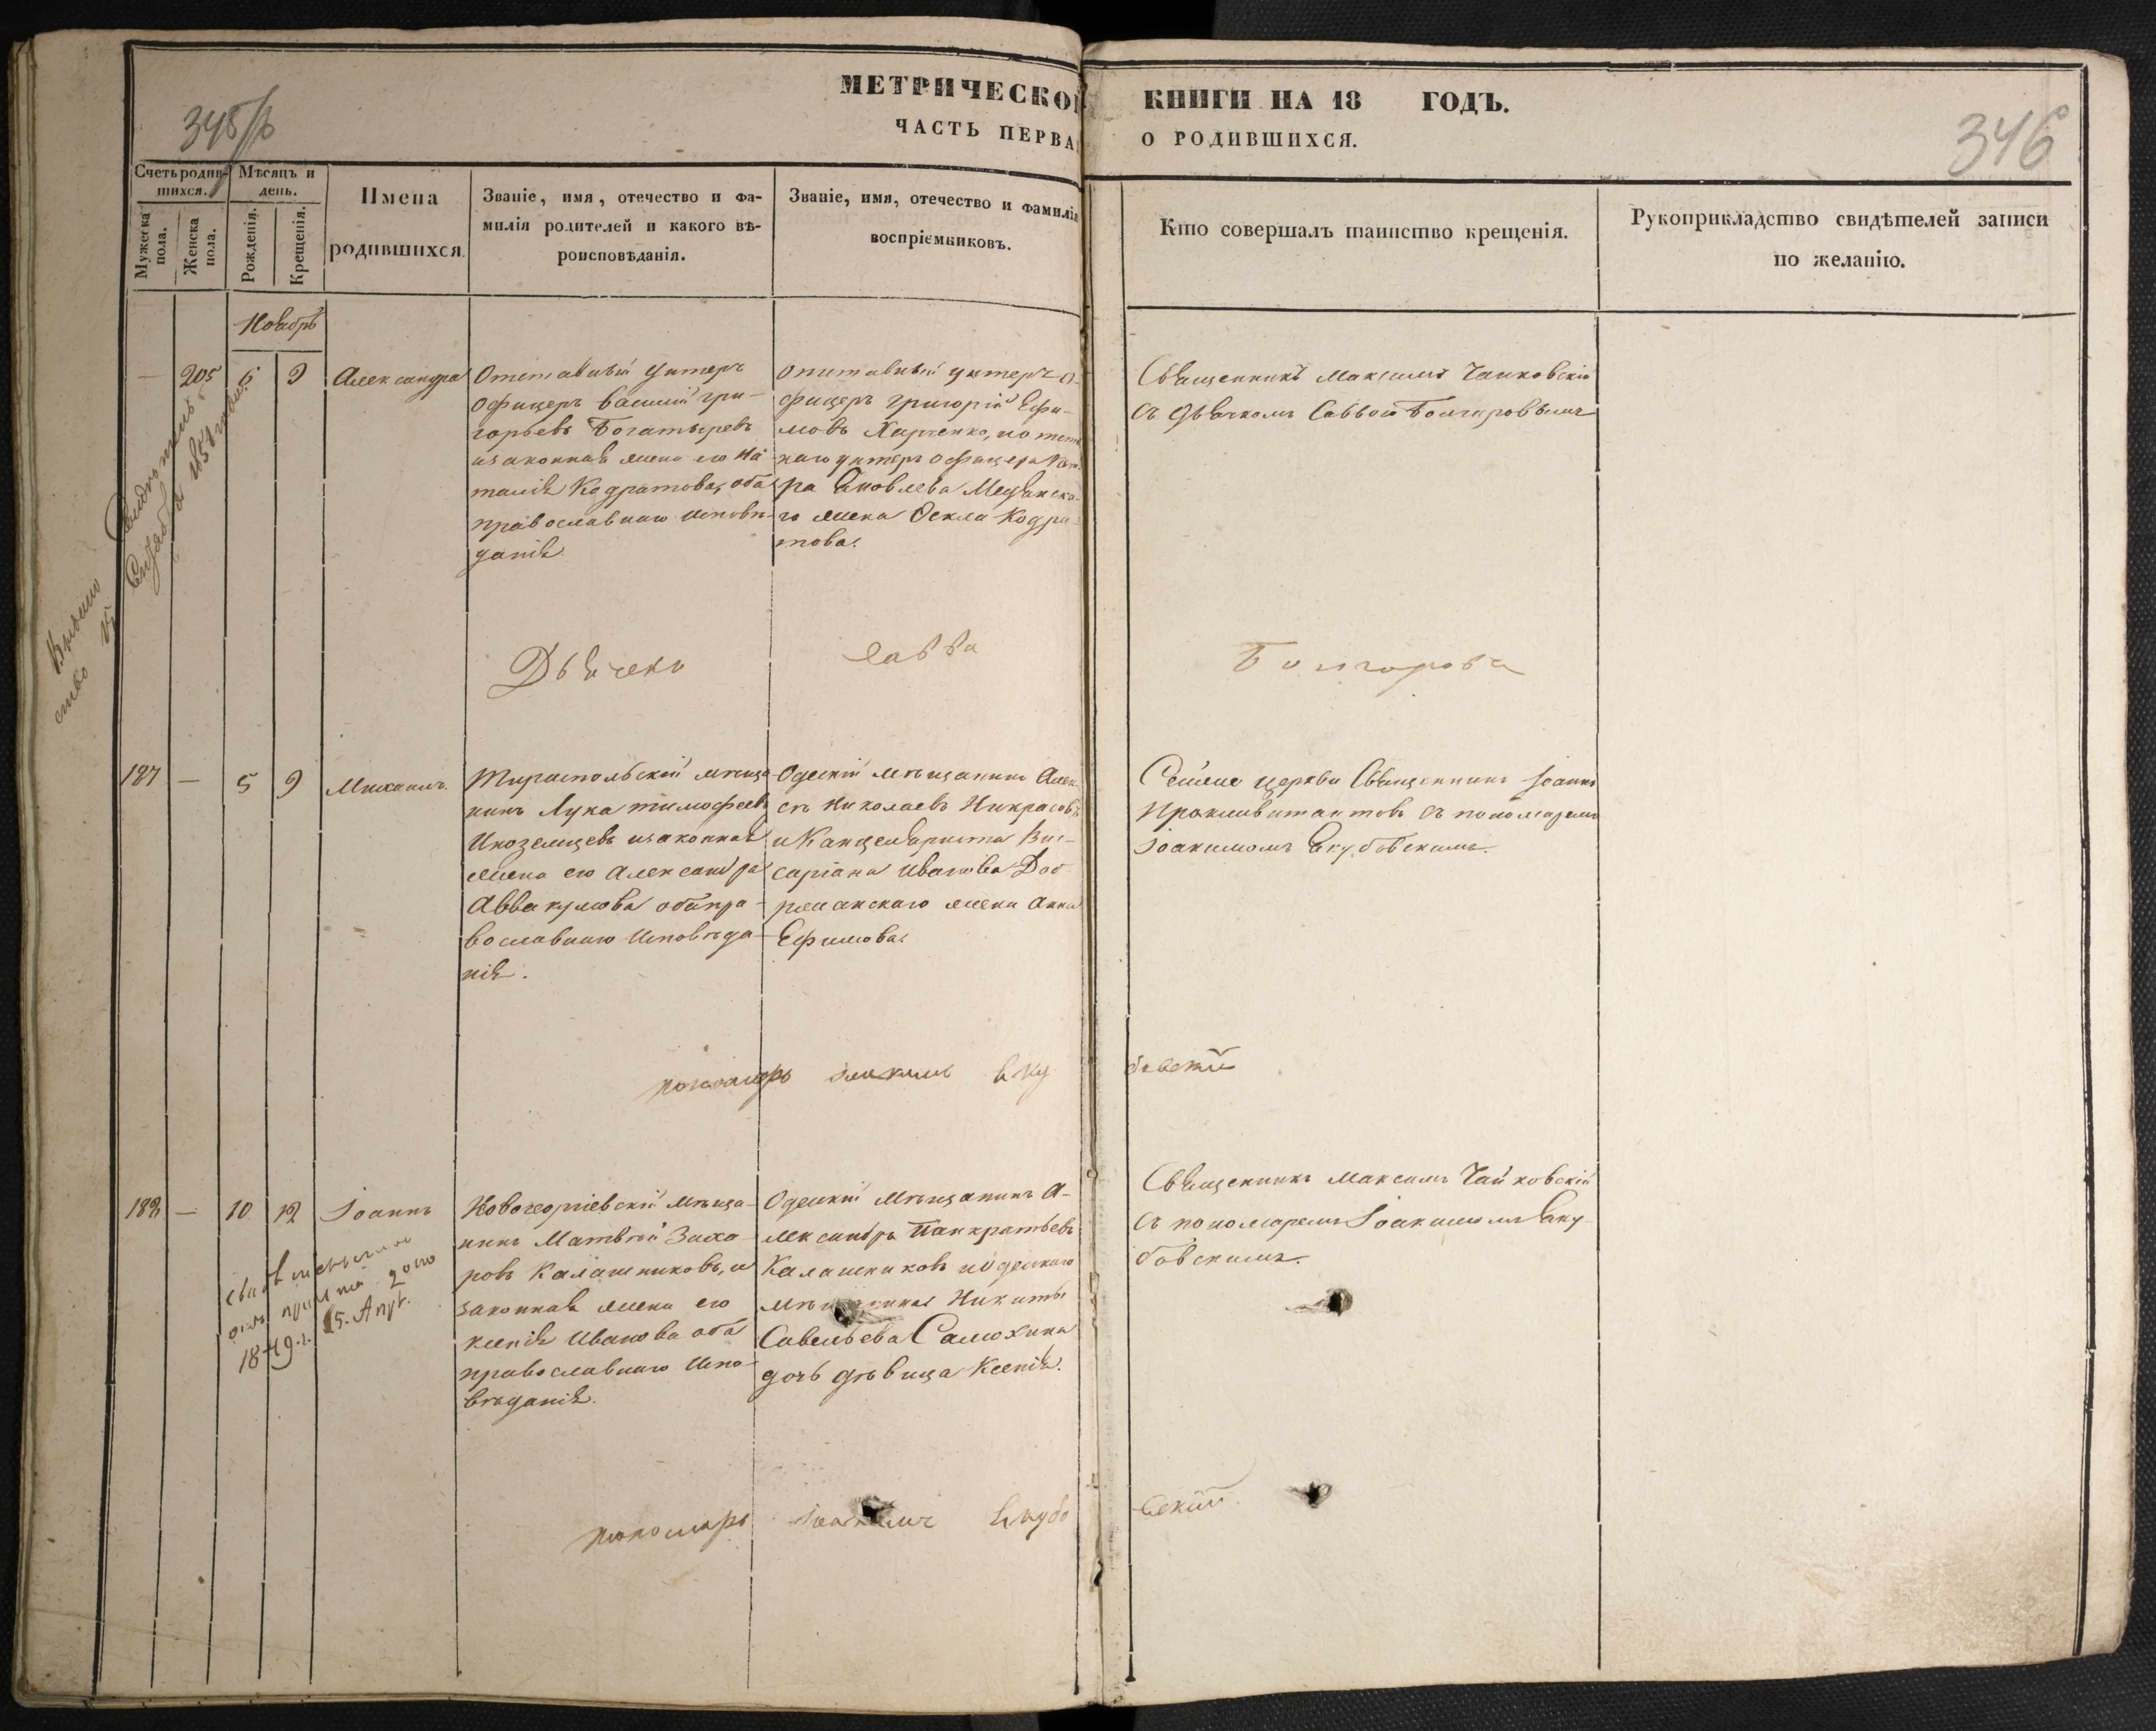 МЕТРИЧЕСКОЙ КНИГИ НА 18 ГОДЪ.
ЧАСТЬ ПЕРВА О РОДИВШИХСЯ.
346
Счетъ родив-
шихся.
Мѣсяцъ и
день.
Мужеска
пола.
Женска
пола.
Рожденія.
Крещенія.
Имена
родившихся.
Званіе, имя, отечество и фа-
милія родителей и какого вѣ-
роисповѣданія.
Званіе, имя, отечество и фамилія
воспріемниковъ.
Кто совершалъ таинство крещенія.
Рукоприкладство свидѣтелей записи
по желанію.
Ноябрь
— 205 6 9 Александра
Отставный унтеръ
офицеръ Василій Гри-
горьевъ Богатыревъ
и законная жена его На-
талія Кодратова, оба
православнаго исповѣ-
данія.
Отставный унтеръ о-
фицеръ Григорій Ефи-
мовъ Харченко, и
наго унтеръ офицера
ра Яковлева Мещанска-
го жена Ѳекла Кодра-
това.
Священникъ Максимъ Чайковскій
съ дьячкомъ Саввою Болгаровымъ
Дьячекъ Савва Болгаровъ
187 — 5 9 Михаилъ.
Тираспольскій мѣща-
нинъ Лука Тимофеевъ
Иноземцевъ и законная
жена его Александра
Аввакумова оба пра-
вославнаго исповѣда-
нія.
Одескій мѣщанинъ Алек-
сѣй Николаевъ Никрасовъ
и Канцеляриста Вис-
саріона Иванова Доб-
романскаго жена Анна
Ефимова.
Сейже церкви Священникъ Іоаннъ
съ пономаремъ
Іоакимомъ Якубовскимъ.
пономарь Іоакимъ Якубовскій
188 — 10 12 Іоаннъ
Новогеоргіевскій мѣща-
нинъ Матвѣй Заха-
ровъ Калашниковъ, и
законная жена его
Ксенія Иванова оба
православнаго испо-
вѣданія.
Одескій мѣщанинъ А-
лександръ Панкратьевъ
Калашниковъ и Одескаго
мѣщанина Никиты
Савельева Самохина
дочь дѣвица Ксенія.
Священникъ Максимъ Чайковскій
съ пономаремъ Іоакимомъ Яку-
бовскимъ.
18 49 г. 15. Апр.
пономарь Іоакимъ Якубовскій